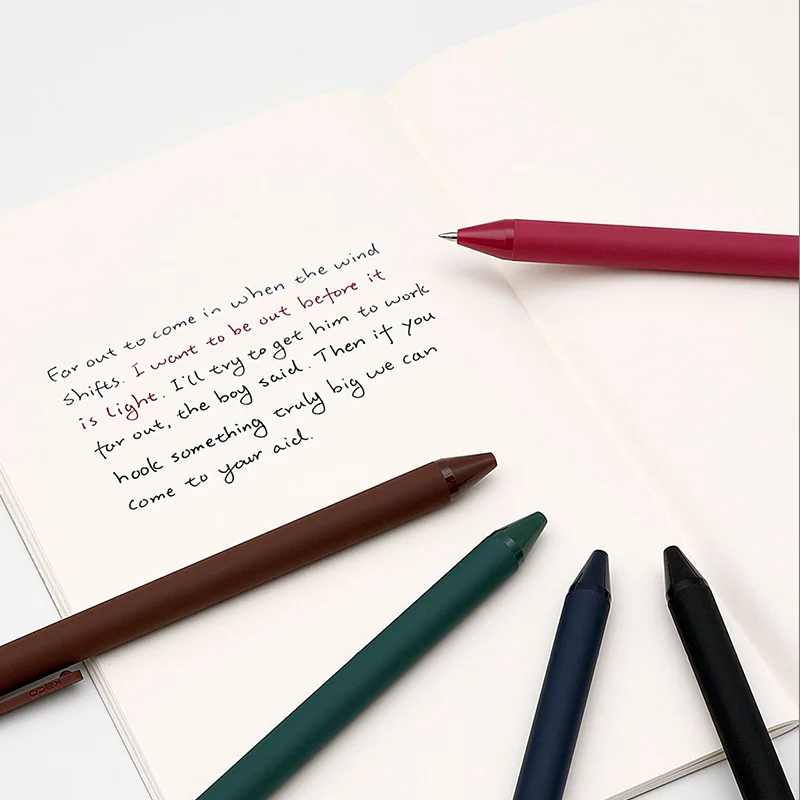 Far out to come in when the wind
shifts. I want to be out before it
is light. I'll try to get him to work
far out, the boy said. Then if you
hook something truly big we can
come to your aid.
kaco